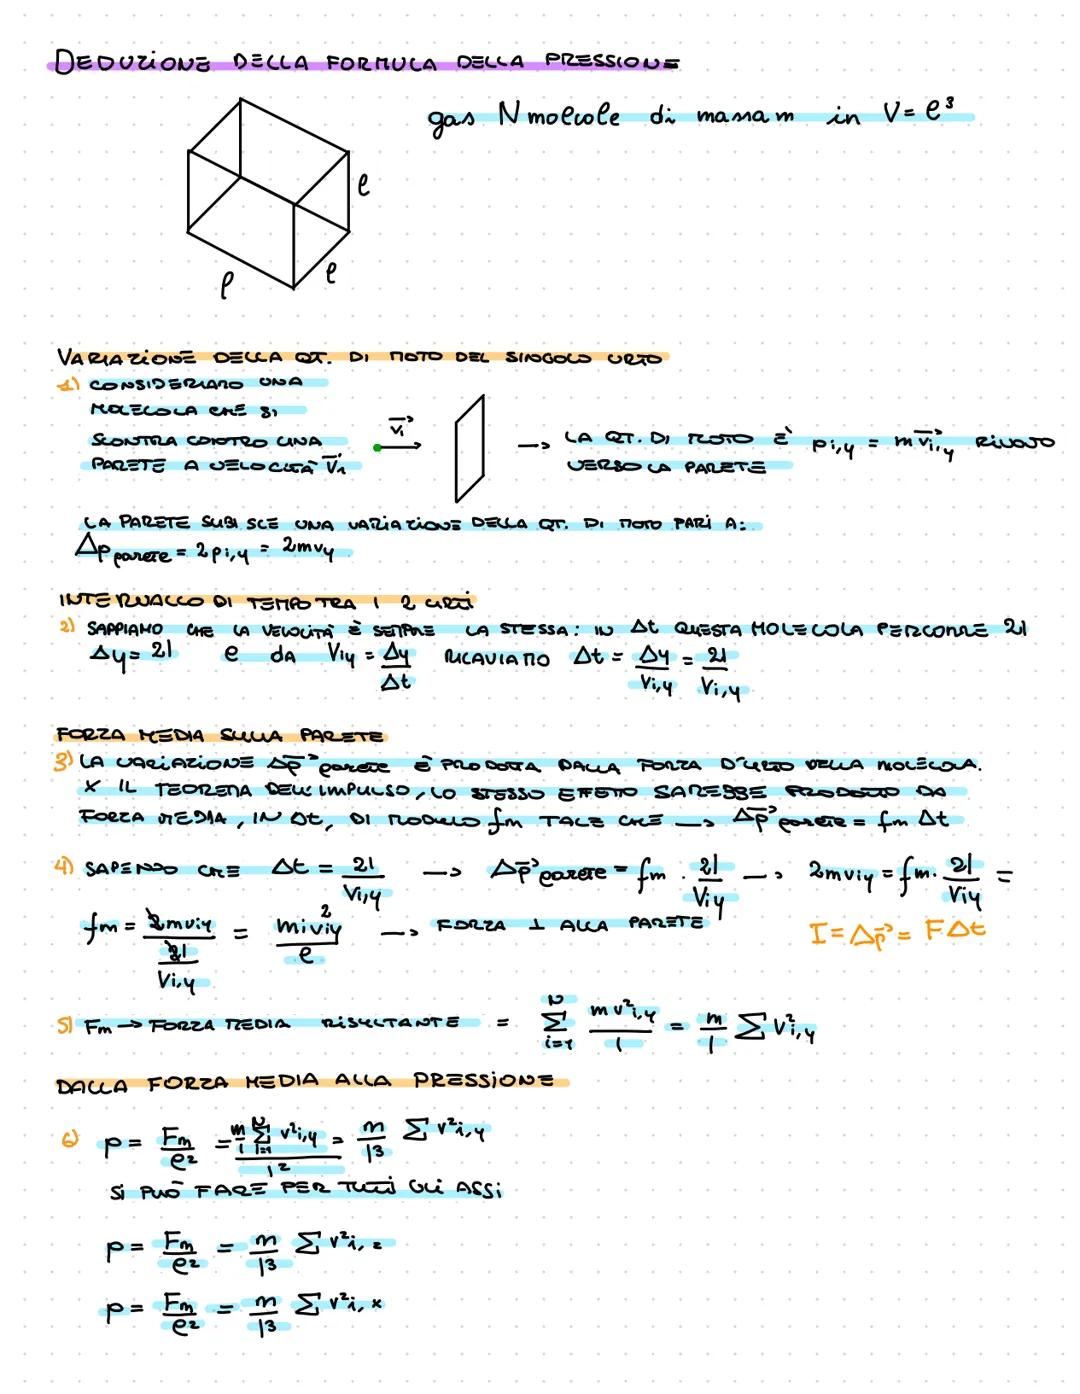 DEDUZIONE DELLA FORMULA DELLA PRESSIONE
gas N molecole di massa m in V = l³
l
l
l
VARIAZIONE DELLA QT. DI MOTO DEL SINGOLO URTO
1) CONSIDERIAMO UNA
MOLECOLA CHE SI
SCONTRA CONTRO UNA
PARETE A VELOCITÀ V⃗i
v⃗i
→ LA QT. DI MOTO È p i,y = m v⃗i,y RIVOLTO
VERSO LA PARETE
LA PARETE SUBISCE UNA VARIAZIONE DELLA QT. DI MOTO PARI A:
Δp parete = 2 p i,y = 2mvy
INTERVALLO DI TEMPO TRA I 2 URTI
2) SAPPIAMO CHE LA VELOCITÀ È SEMPRE LA STESSA: IN Δt QUESTA MOLECOLA PERCORRE 2l
Δy = 2l e da Viy = Δy/Δt RICAVIAMO Δt = Δy/Vi,y = 2l/Vi,y
FORZA MEDIA SULLA PARETE
3) LA VARIAZIONE Δp⃗ parete È PRODOTTA DALLA FORZA D'URTO DELLA MOLECOLA.
X IL TEOREMA DELL'IMPULSO, LO STESSO EFFETTO SAREBBE PRODOTTO DA
FORZA MEDIA, IN Δt, DI MODULO fm TALE CHE → Δp⃗ parete = fm Δt
4) SAPENDO CHE Δt = 2l/Vi,y → Δp⃗ parete = fm · 2l/Viy → 2mviy = fm · 2l/Viy =
fm = 2mviy/(2l/Vi,y) = mi viy²/l → FORZA ⊥ ALLA PARETE
I = Δp⃗ = FΔt
5) Fm → FORZA MEDIA RISULTANTE = Σ_{i=1}^{N} m v²i,y/l = m/l Σ V²i,y
DALLA FORZA MEDIA ALLA PRESSIONE
6) p = Fm/l² = (m/l Σ_{i=1}^{N} v²i,y)/l² = m/l³ Σ v²i,y
SI PUÒ FARE PER TUTTI GLI ASSI
p = Fm/l² = m/l³ Σ v²i,z
p = Fm/l² = m/l³ Σ v²i,x